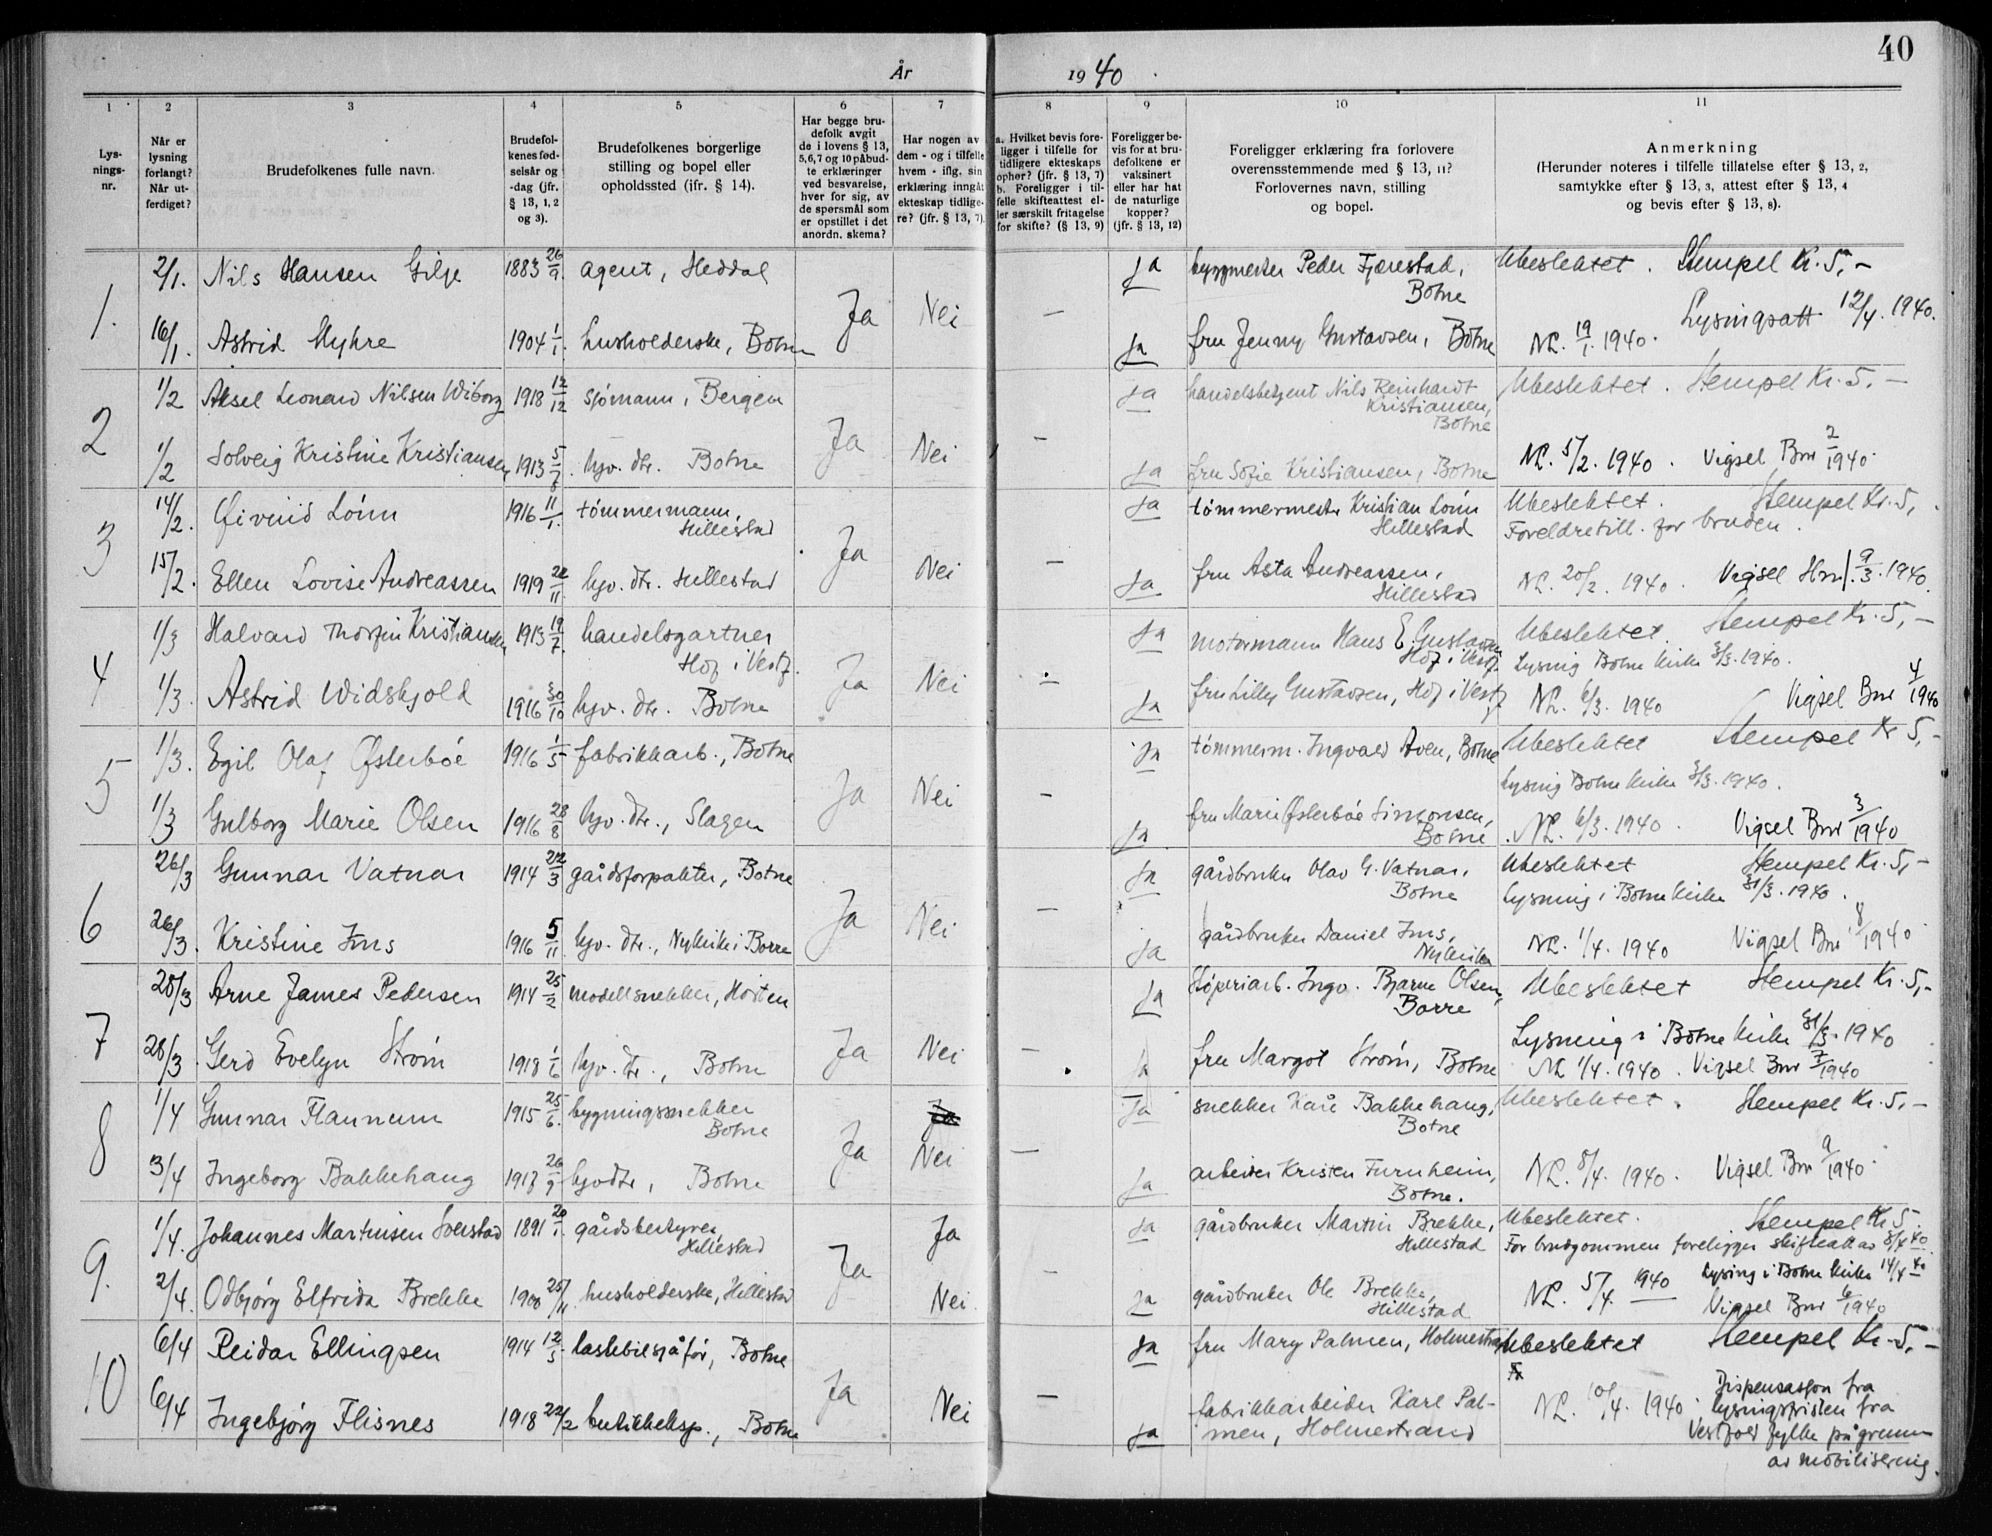 40
År 1940.
1 2 3 4 5 6 7 8 9 10 11
Lysnings-
nr.
Når er
lysning
forlangt?
Når ut-
ferdiget?
Brudefolkenes fulle navn.
Brudefol-
kenes fød-
selsår og
-dag (jfr.
§ 13, 1, 2
og 3).
Brudefolkenes borgerlige
stilling og bopel eller
opholdssted (jfr. § 14).
Har begge bru-
defolk avgit
de i lovens § 13,
5,6,7 og 10 påbud-
te erklæringer
ved besvarelse,
hver for sig, av
de spørsmål som
er opstillet i det
anordn. skema?
Har nogen av
dem - og i tilfelle
hvem - iflg. sin
erklæring inngåt
ekteskap tidlige-
re? (jfr. § 13, 7).
a. Hvilket bevis fore-
ligger i tilfelle for
tidligere ekteskaps
ophør? (jfr. § 13, 7)
b. Foreligger i til-
felle skifteattest el-
ler særskilt fritagelse
for skifte? (§ 13, 9)
Foreligger be-
vis for at bru-
defolkene er
vaksinert
eller har hat
de naturlige
kopper?
(jfr. § 13, 12)
Foreligger erklæring fra forlovere
overensstemmende med § 13, 11?
Forlovernes navn, stilling
og bopel.
Anmerkning
(Herunder noteres i tilfelle tillatelse efter § 13, 2,
samtykke efter § 13, 3, attest efter § 13, 4
og bevis efter § 13, 8).
1. 2/1. Nils Hansen Gilje 1883 26/9. agent, Heddal Ja Nei — ja byggmester Peder Fjærestad, Botne Ubeslektet. Stempel Kr. 5,-
Lysingsatt 12/4. 1940.
16/1. Astrid Myhre 1904 1/1. husholderske, Botne ja fru Jenny Gustavsen, Botne NL. 19/1. 1940.
2 1/2 Aksel Leonard Nilsen Wiborg 1918 12/12 sjømann, Bergen Ja Nei — ja handelsbetjent Nils Reinhardt Kristiansen, Botne Ubeslektet. Stempel Kr. 5.—
1/2 Solveig Kristine Kristiansen 1913 5/8. hjv. dtr. Botne ja fru Sofie Kristiansen, Botne NL. 5/2. 1940. Vigsel Bnr 2/1940.
3 14/2. Øivind Lønn 1916 11/1. tømmermann, Hillestad Ja Nei — ja tømmermestr Kristian Lønn Hillestad Ubeslektet. Stempel Kr. 5,
Foreldretill. for bruden.
15/2. Ellen Lovise Andreassen 1919 22/11 hjv. dtr. Hillestad ja fru Asta Andreassen, Hillestad NL. 20/2. 1940. Vigsel Hnr 1. 9/3. 1940.
4 1/3 Halvard Thorfin Kristiansen 1913 19/7. handelsgartner Hof i Vestf. Ja Nei — ja motormann Hans E. Gustavsen Hof i Vestf. Ubeslektet. Stempel Kr. 5,—
Lysning Botne kirke 3/3. 1940.
1/3. Astrid Widskjold 1916 30/10 hjv. dtr. Botne ja fru Lilly Gustavsen, Hof i Vestf NL. 6/3. 1940 Vigsel Bnr 4/1940
5 1/3. Egil Olaf Østerbøe 1916 1/5 fabrikkarb., Botne Ja Nei — ja tømmerm. Ingvald Aven, Botne Ubeslektet Stempel Kr 5,-
Lysing Botne kirke 3/3. 1940.
1/3 Gulborg Marie Olsen 1916 28/8 hjv. dtr., Slagen ja fru Marie Østerbøe Simonsen, Botne NL. 6/3. 1940. Vigsel Bnr 3/1940
6 26/3 Gunnar Vatnar 1914 22/3 gårdsforpakter, Botne Ja Nei — ja gårdbruker Olav G. Vatnar, Botne Ubeslektet Stempel Kr. 5,-
Lysning i Botne kirke 31/3. 1940.
26/3. Kristine Ims 1916 5/11 hjv. dtr., Nykirke i Borre ja gårdbruker Daniel Ims, Nykirke NL. 1/4. 1940 Vigsel Bnr 8/1940
7 28/3 Arne James Pedersen 1914 25/2 modellsnekker, Horten Ja Nei — ja støperiarb. Ingv. Bjarne Olsen, Borre Ubeslektet Stempel Kr. 5,-
Lysning i Botne kirke 31/3. 1940
28/3. Gerd Evelyn Strøm 1918 1/6 hjv. dtr., Botne ja fru Margot Strøm, Botne NL 1/4. 1940. Vigsel Bnr 7/1940
8 1/4 Gunnar Flannum 1915 25/6. bygningssnekker Botne Ja Nei — ja snekker Kåre Bakkehaug, Botne Ubeslektet. Stempel Kr. 5,-
3/4 Ingeborg Bakkehaug 1917 26/9 hjvdtr, Botne ja arbeider Kristen Furuheim, Botne. NL. 8/4. 1940. Vigsel Bnr 9/1940.
9. 1/4. Johannes Martinsen Sverstad 1891 20/1. gårdsbestyrer, Hillestad Ja Ja — ja gårdbruker Martin Brekke, Hillestad Ubeslektet. Stempel Kr. 5
For brudgommen foreligger skifteatt av 8/4 40.
Lysing i Botne kirke 14/4 40
2/4. Odbjørg Elfrida Brekke 1900 25/11. husholderske, Hillestad Nei. ja gårdbruker Ole Brekke, Hillestad NL. 5/4. 1940 Vigsel Bnr 6/1940
10 6/4 Reidar Ellingsen 1914 12/5. lastebilsjåfør, Botne Ja Nei — ja fru Mary Palmen, Holmestrand Ubeslektet Stempel Kr. 5,-
6/4 Ingebjørg Flisnes 1918 22/2 butikkeksp., Botne ja fabrikkarbeider Karl Pal-
men, Holmestrand NL. 10/4. 1940. Dispensasjon fra
lysningsfristen fra
Vestfold fylke på grunn
av mobilisering.